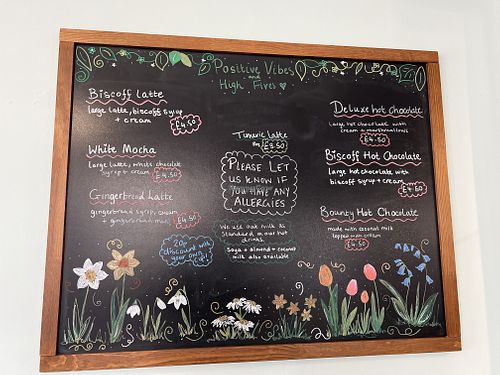 Positive Vibes
and
High Fives
Biscoff Latte
large latte, biscoff syrup
+ cream
£4.50
White Mocha
large latte, white chocolate
syrup + cream
£4.50
Gingerbread Latte
gingerbread syrup, cream
+ gingerbread man
£4.50
20p
discount with
your own
cup!
Tumeric latte
£3.50
Please Let
us know if
you have any
Allergies
We use oat milk as
standard in our hot
drinks.
Soya + almond + coconut
milk also available
Deluxe hot Chocolate
large hot chocolate with
cream + marshmallows
£4.50
Biscoff Hot Chocolate
large hot chocolate with
biscoff syrup + cream
£4.50
Bounty Hot Chocolate
made with coconut milk
topped with cream
£4.50